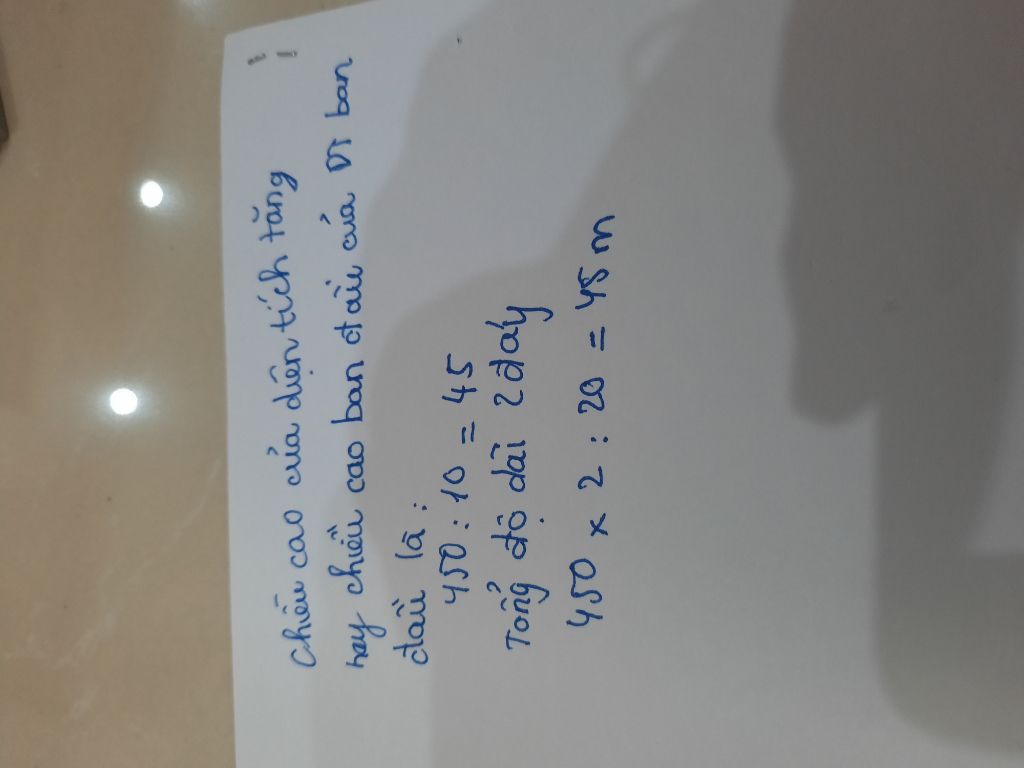 Chiều cao của diện tích tăng
hay chiều cao ban đầu của DT ban
đầu là :
450 : 10 = 45
Tổng độ dài 2 đáy
450 x 2 : 20 = 45 m